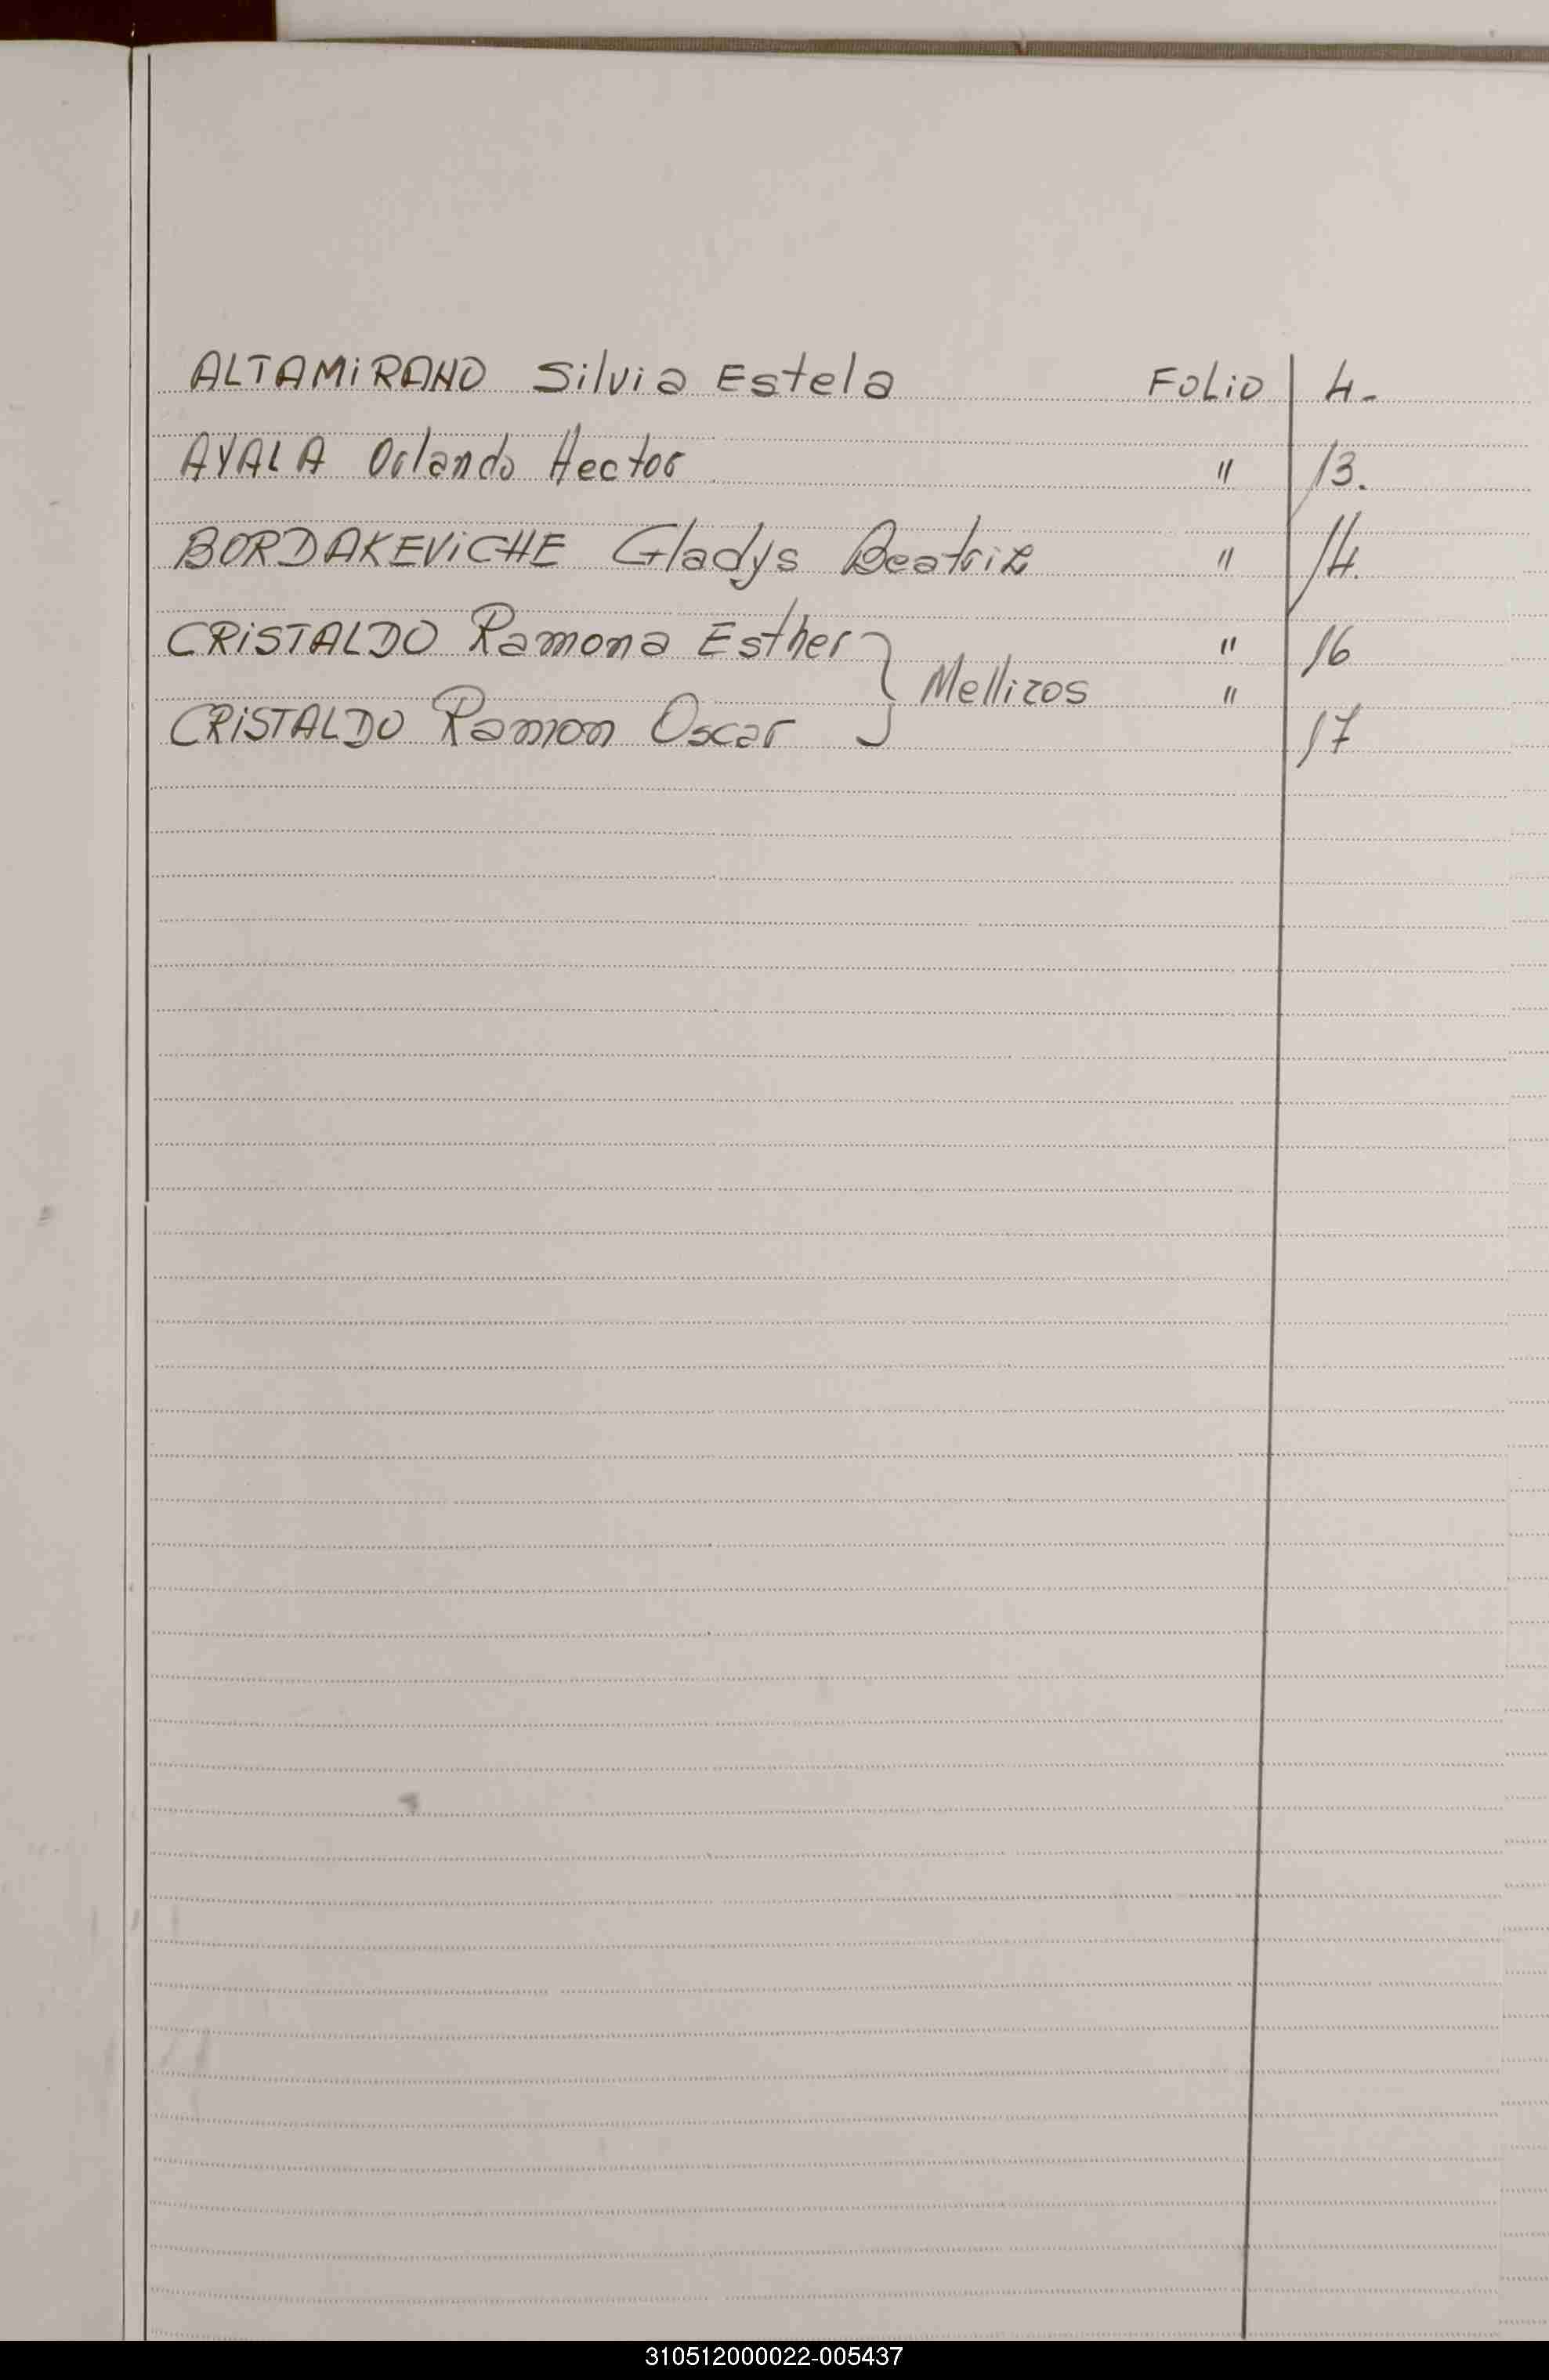 ALTAMiRANO Silvia Estela Folio 4.-
AYALA Orlando Hector " 13.
BORDAKEViCHE Gladys Beatriz " 14.
CRiSTALDO Ramona Esther " 16
} Mellizos "
CRiSTALDO Ramon Oscar 17
310512000022-005437